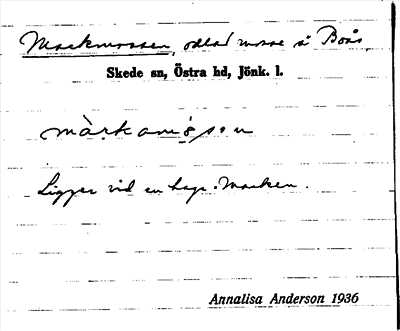 Markmossen, odlad mosse å Boås
Skede sn, Östra hd, Jönk. l.
Ligger vid en hage: Marken.
Annalisa Anderson 1936